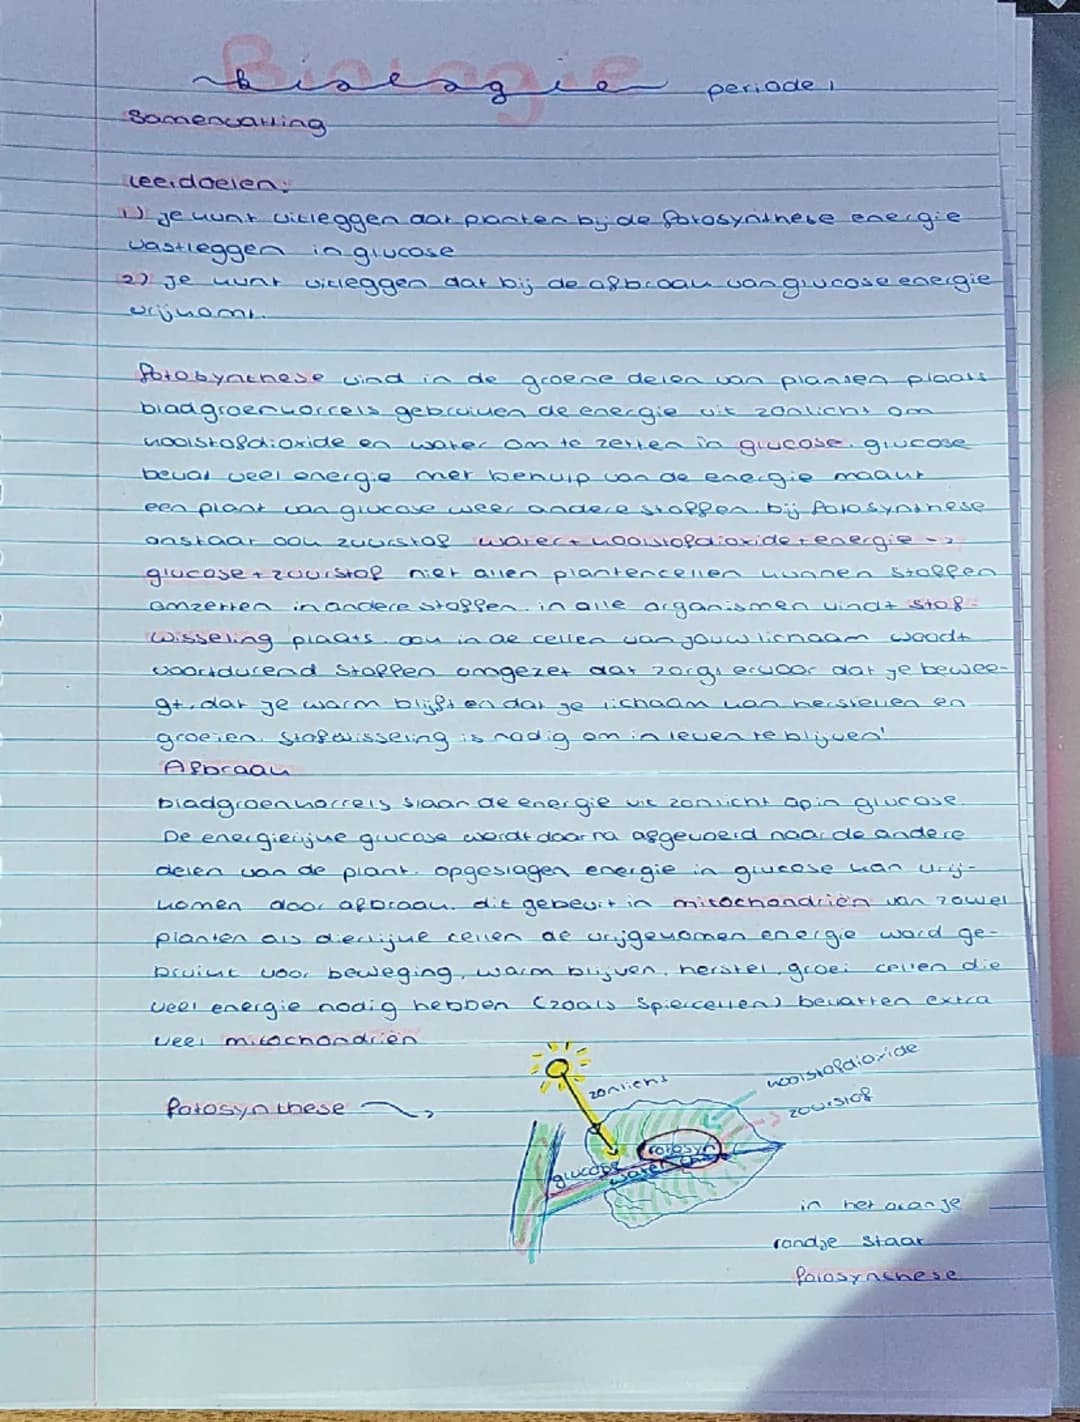 Biologie
biologie periode 1
Samenvatting
Leerdoelen:
1) je kunt uitleggen dat planten bij de fotosynthese energie
vastleggen in glucose
2) je kunt uitleggen dat bij de afbraak van glucose energie
vrijkomt.
fotosynthese vind in de groene delen van planten plaats
bladgroenkorrels gebruiken de energie uit zonlicht om
koolstofdioxide en water om te zetten in glucose. glucose
bevat veel energie met behulp van de energie maakt
een plant van glucose weer andere stoffen. bij fotosynthese
onstaat ook zuurstof water + koolstofdioxide + energie ->
glucose + zuurstof niet allen plantencellen kunnen stoffen
omzetten in andere stoffen. in alle organismen vindt stof-
wisseling plaats. ook in de cellen van jouw lichaam woodt
voortdurend stoffen omgezet dat zorgt ervoor dat je bewee-
gt, dat je warm blijft en dat je lichaam kan herstellen en
groeien. Stofwisseling is nodig om in leven te blijven!
Afbraak
bladgroenkorrels slaan de energie uit zonlicht op in glucose.
De energierijke glucose wordt daarna afgevoerd naar de andere
delen van de plant. opgeslagen energie in glucose kan vrij-
komen door afbraak. dit gebeurt in mitochondriën van zowel
planten als dierlijke cellen de vrijgekomen energie word ge-
bruikt voor beweging, warm blijven, herstel, groei cellen die
veel energie nodig hebben (zoals spiercellen) bevatten extra
veel mitochondriën
fotosynthese
zonlicht
koolstofdioxide
zuurstof
fotosyn
glucose
water
in het oranje
rondje staat
fotosynthese